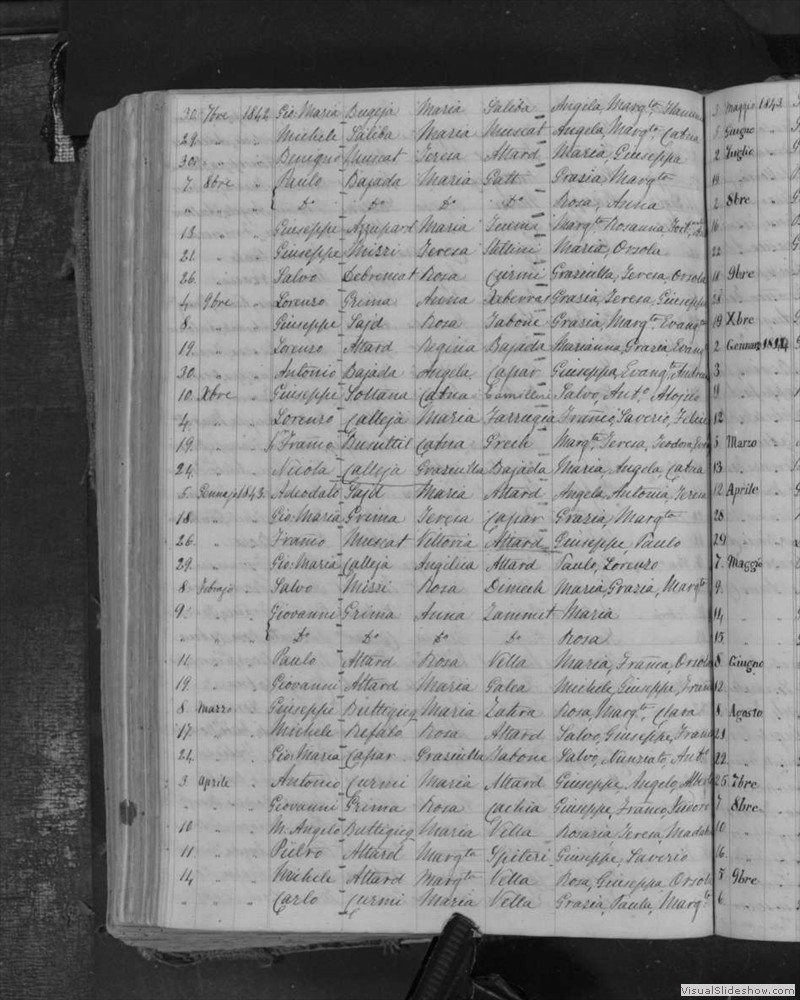 30 7bre 1842 Gio: Maria Bugeja Maria Saliba Angela, Margta,
29 " " Michele Saliba Maria Muscat Angela, Margta, Catna
30 " " Benigno Muscat Teresa Attard Maria, Giuseppa
7 8bre " Paulo Bajada Maria Gatt Grazia, Margta
" " " Do Do Do Do Rosa, Anna
13 " " Giuseppe Azzupard Maria Margta, Rosanna,
21 " " Giuseppe Mizzi Teresa Stellini Maria, Orsola
26 " " Salvo Debrencat Rosa Curmi Graziulla, Teresa, Orsola
4 9bre " Lorenzo Grima Anna Xeberras Grazia, Teresa, Giuseppa
8 " " Giuseppe Sajd Rosa Tabone Grazia, Margta, Evangta
19 " " Lorenzo Attard Regina Bajada Marianna, Grazia, Evang
30 " " Antonio Bajada Angela Capar Giuseppa, Evangta, Andrea
10 Xbre " Giuseppe Soltana Catna Camilleri Salvo, Anto, Alojsio
4 " " Lorenzo Calleja Maria Farrugia Franco, Saverio, Felice
19 " " Franco Busuttil Catna Grech Margta, Teresa, Teodora,
24 " " Nicola Calleja Graziulla Bajada Maria, Angela, Catna
5 Gennajo 1843 Adeodato Sajd Maria Attard Angela, Antonia, Teresa
18 " " Gio: Maria Grima Teresa Capar Grazia, Margta
26 " " Franco Muscat Vittoria Attard Giuseppe, Paulo
29 " " Gio: Maria Calleja Angelica Attard Paulo, Lorenzo
8 Febrajo " Salvo Mizzi Rosa Dimech Maria, Grazia, Margta
9 " " Giovanni Grima Anna Zammit Maria
" " " Do Do Do Do Rosa
11 " " Paulo Attard Rosa Vella Maria, Franca, Orsola
19 " " Giovanni Attard Maria Galea Michele, Giuseppe, Franco
8 Marzo " Giuseppe Buttigieg Maria Zahra Rosa, Margta, Clara
17 " " Michele Refalo Rosa Attard Salvo, Giuseppe, Franco
24 " " Gio: Maria Capar Graziulla Tabone Salvo, Nunziato, Anto
3 Aprile " Antonio Curmi Maria Attard Giuseppe, Angelo, Alberto
" " " Giovanni Grima Rosa Cachia Giuseppe, Franco, Isidoro
10 " " M: Angelo Buttigieg Maria Vella Rosaria, Teresa,
11 " " Pietro Attard Margta Spiteri Giuseppe, Saverio
14 " " Michele Attard Margta Vella Rosa, Giuseppa, Orsola
" " " Carlo Curmi Maria Vella Grazia, Paula, Margta
Maggio 1843
Giugno "
2 Luglio "
19 " "
2 8bre "
16 " "
22 " "
9bre "
28 " "
19 Xbre "
2 Gennaro 1844
3 " "
9 " "
12 " "
3 Marzo "
13 " "
12 Aprile "
28 " "
29 " "
7 Maggio "
9 " "
14 " "
15 " "
8 Giugno "
12 " "
8 Agosto "
21 " "
22 " "
25 7bre "
7 8bre "
10 " "
16 " "
5 9bre "
6 " "
VisualSlideshow.com